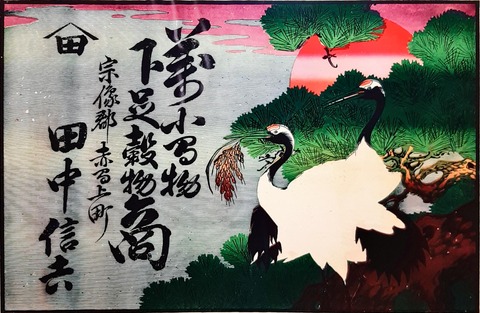 萬小間物
下足穀物商
宗像郡赤間上町
田中信吉
田